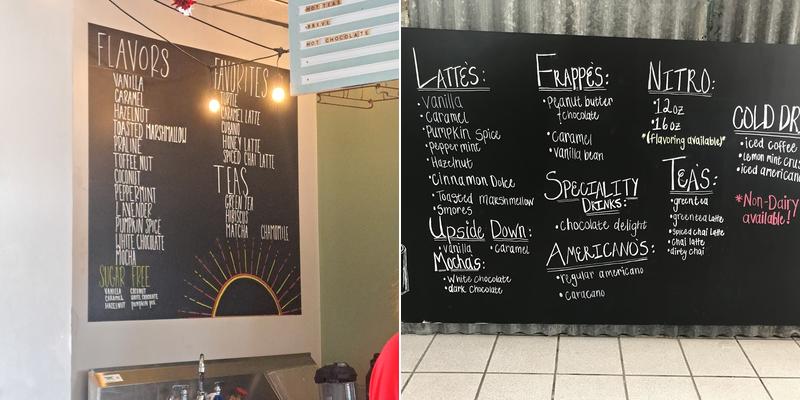 HOT TEAS
BREVE
HOT CHOCOLATE
FLAVORS
VANILLA
CARAMEL
HAZELNUT
TOASTED MARSHMALLOW
PRALINE
TOFFEE NUT
COCONUT
PEPPERMINT
LAVENDER
PUMPKIN SPICE
WHITE CHOCOLATE
MOCHA
SUGAR FREE
VANILLA COCONUT
CARAMEL WHITE CHOCOLATE
HAZELNUT PUMPKIN PIE
FAVORITES
TURTLE
CARAMEL LATTE
CUBANO
HONEY LATTE
SPICED CHAI LATTE
TEAS
GREEN TEA
HIBISCUS
MATCHA CHAMOMILE
LATTE'S:
• Vanilla
• caramel
• Pumpkin Spice
• Peppermint
• Hazelnut
• Cinnamon Dolce
• Toasted Marshmellow
• Smores
Upside Down:
• Vanilla • caramel
Mocha's:
• White Chocolate
• dark Chocolate
FRAPPE'S:
• Peanut butter
chocolate
• Caramel
• Vanilla bean
SPECIALITY
DRINKS:
• chocolate delight
AMERICANO'S:
• regular americano
• caracano
NITRO:
• 12oz
• 16oz
*(flavoring available)*
TEA'S:
• green tea
• green tea latte
• spiced chai latte
• chai latte
• dirty chai
COLD DR
• iced coffee
• Lemon mint Crus
• iced american
*Non-Dairy
available!*